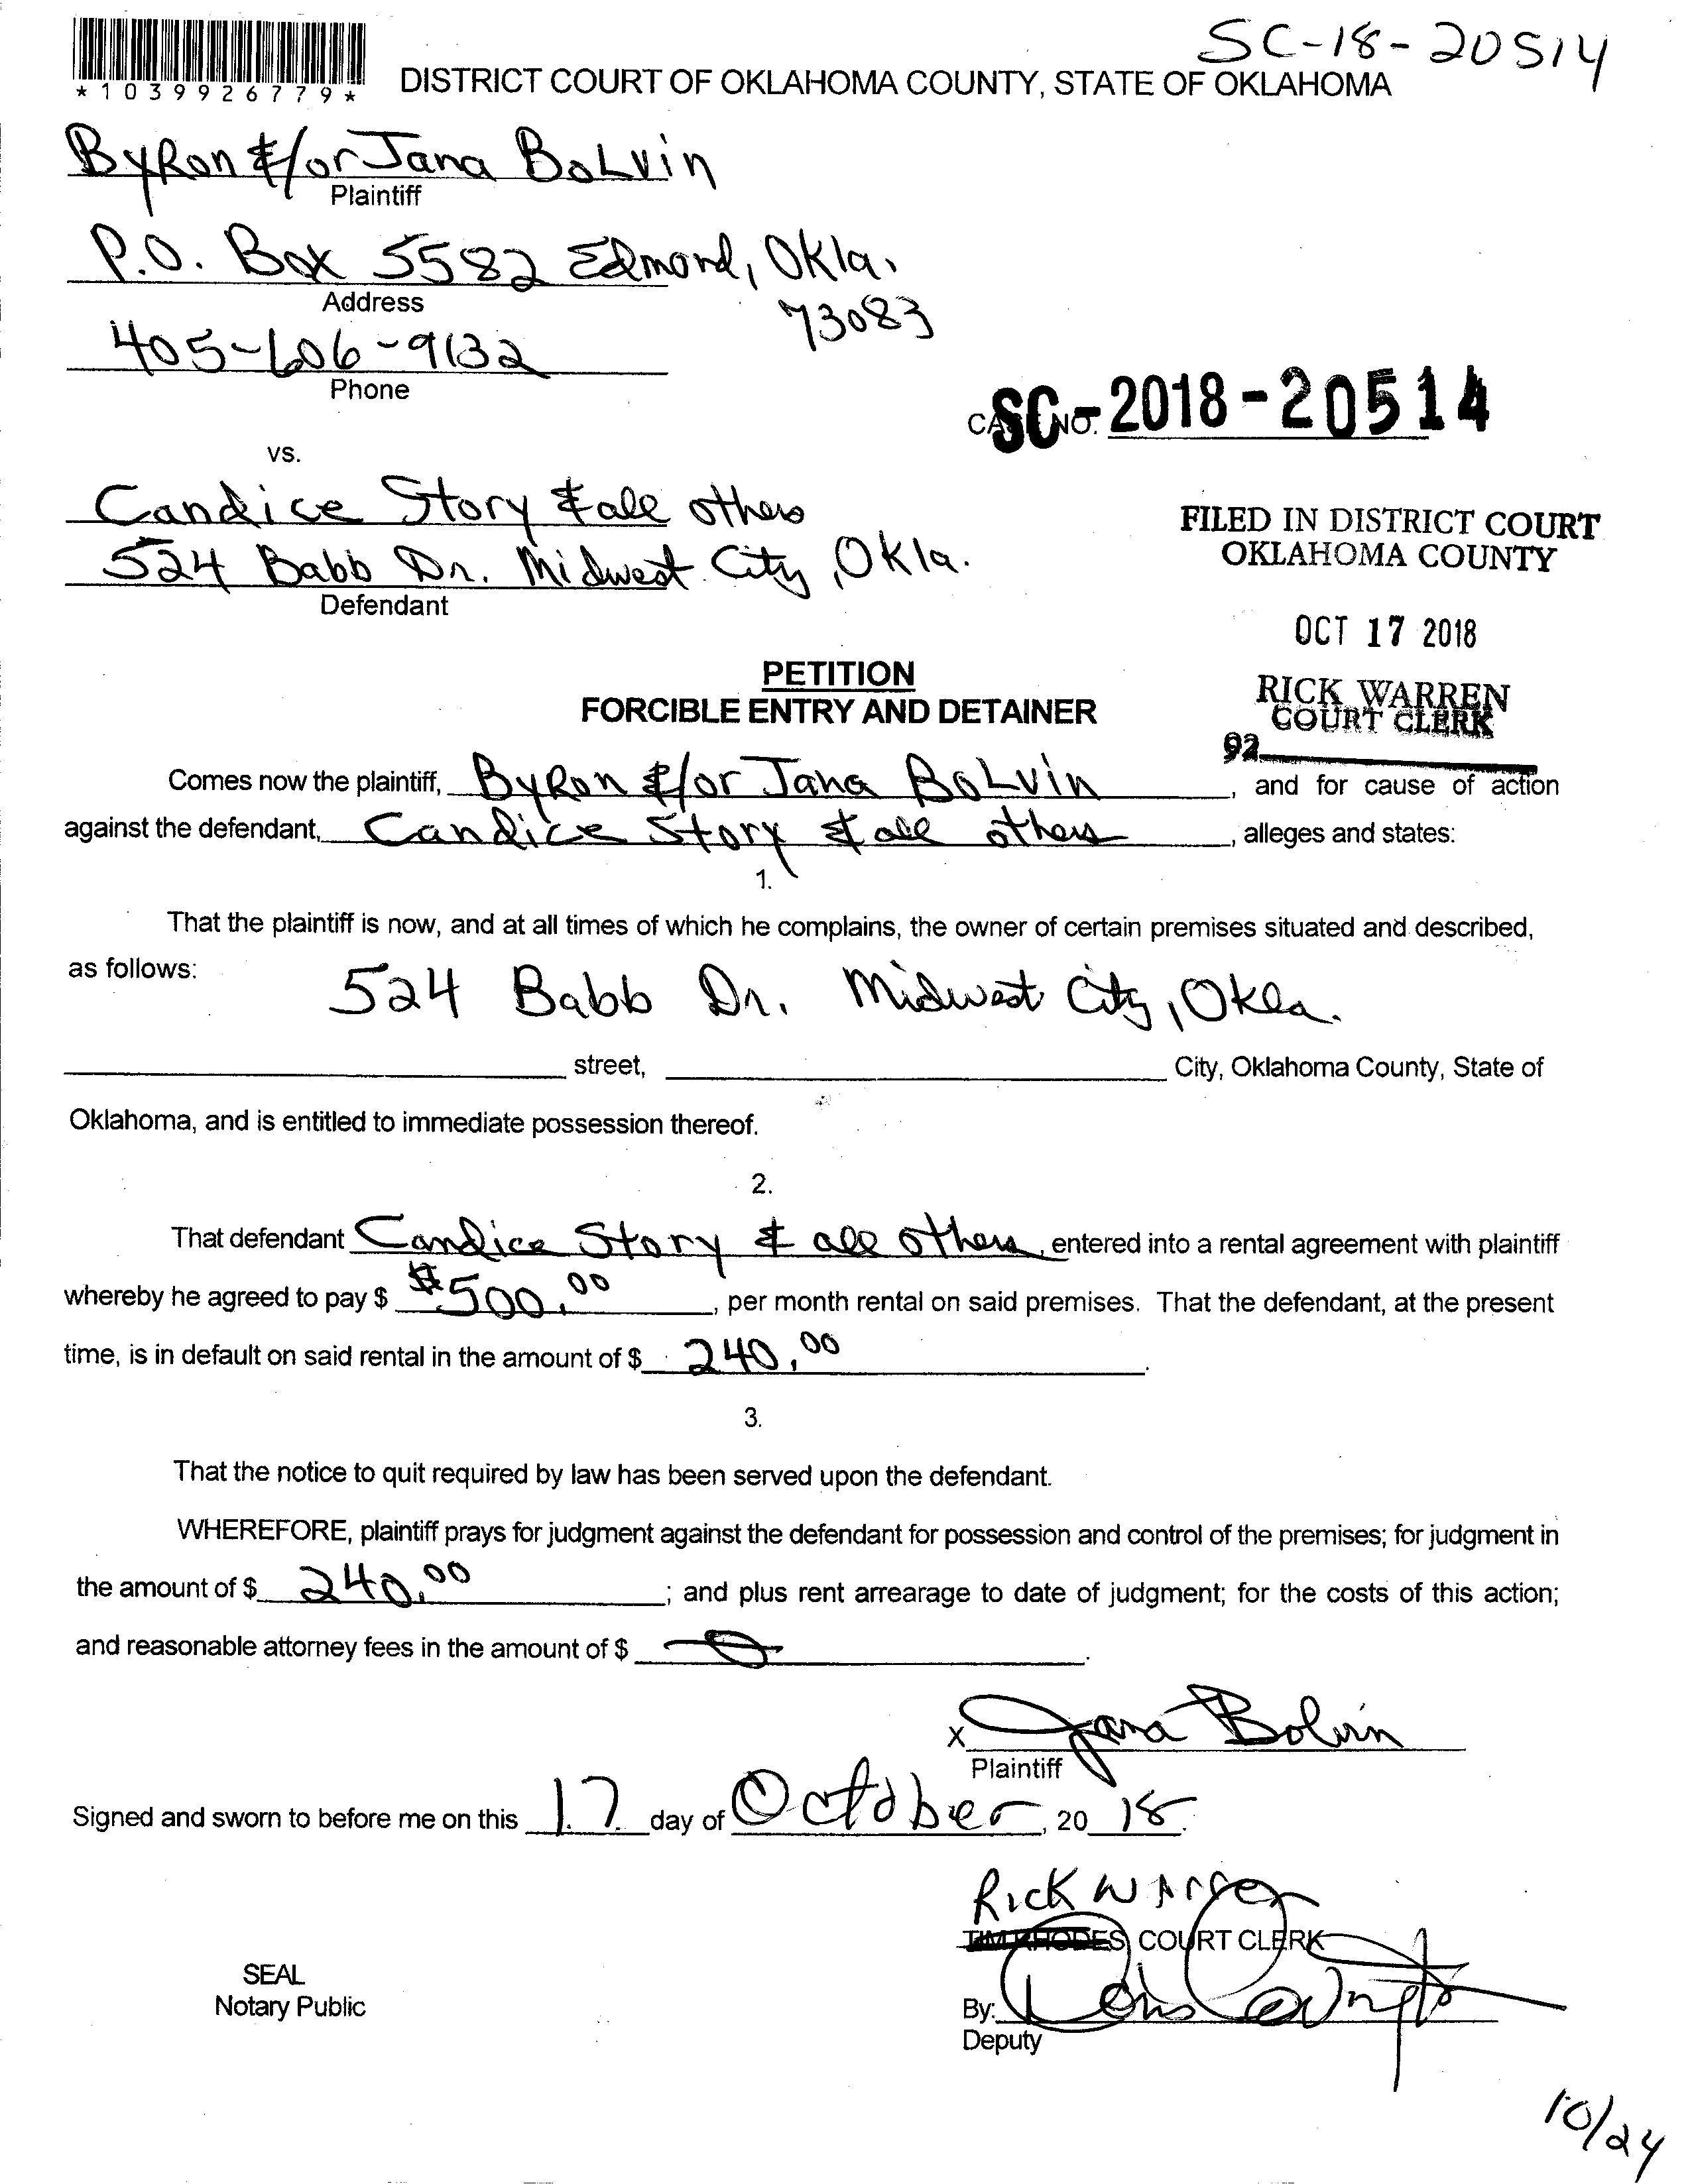 SC-18-20514
*1039926779*
DISTRICT COURT OF OKLAHOMA COUNTY, STATE OF OKLAHOMA
ByRon &/or Jana BoLvin
Plaintiff
P.O. Box 5582 Edmond, Okla.
73083
Address
405-606-9132
Phone
CASE NO. SC-2018-20514
vs.
Candice Story & all others
524 Babb Dr. Midwest City, Okla.
Defendant
FILED IN DISTRICT COURT
OKLAHOMA COUNTY
OCT 17 2018
RICK WARREN
COURT CLERK
92
PETITION
FORCIBLE ENTRY AND DETAINER
Comes now the plaintiff, ByRon &/or Jana BoLvin, and for cause of action
against the defendant, Candice Story & all others, alleges and states:
1.
That the plaintiff is now, and at all times of which he complains, the owner of certain premises situated and described,
as follows: 524 Babb Dr. Midwest City, Okla.
street, City, Oklahoma County, State of
Oklahoma, and is entitled to immediate possession thereof.
2.
That defendant Candice Story & all others, entered into a rental agreement with plaintiff
whereby he agreed to pay $ $500.00, per month rental on said premises. That the defendant, at the present
time, is in default on said rental in the amount of $ 240.00.
3.
That the notice to quit required by law has been served upon the defendant.
WHEREFORE, plaintiff prays for judgment against the defendant for possession and control of the premises; for judgment in
the amount of $ 240.00; and plus rent arrearage to date of judgment; for the costs of this action;
and reasonable attorney fees in the amount of $ 0.
X Jana Bolvin
Plaintiff
Signed and sworn to before me on this 17 day of October, 20 18.
Rick Warren
TIM RHODES COURT CLERK
SEAL
Notary Public
By: Lois
Deputy
10/24